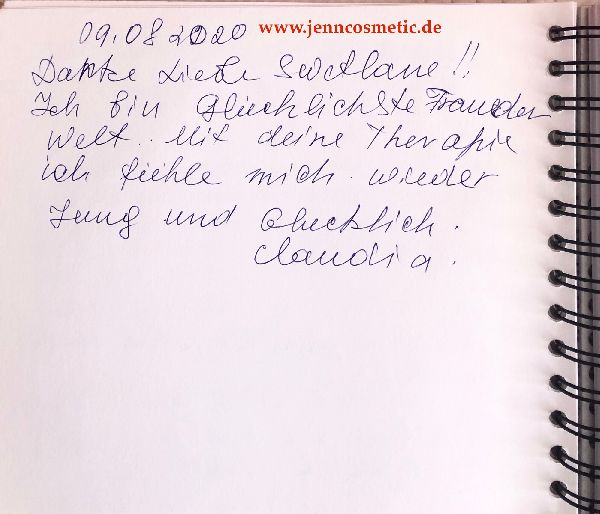 09.08 2020 www.jenncosmetic.de
Danke Liebe Swetlane!!
Ich bin Glücklichste Frau der
Welt. Mit deine Therapie
ich fühle mich wieder
Jung und Glücklich.
Claudia.